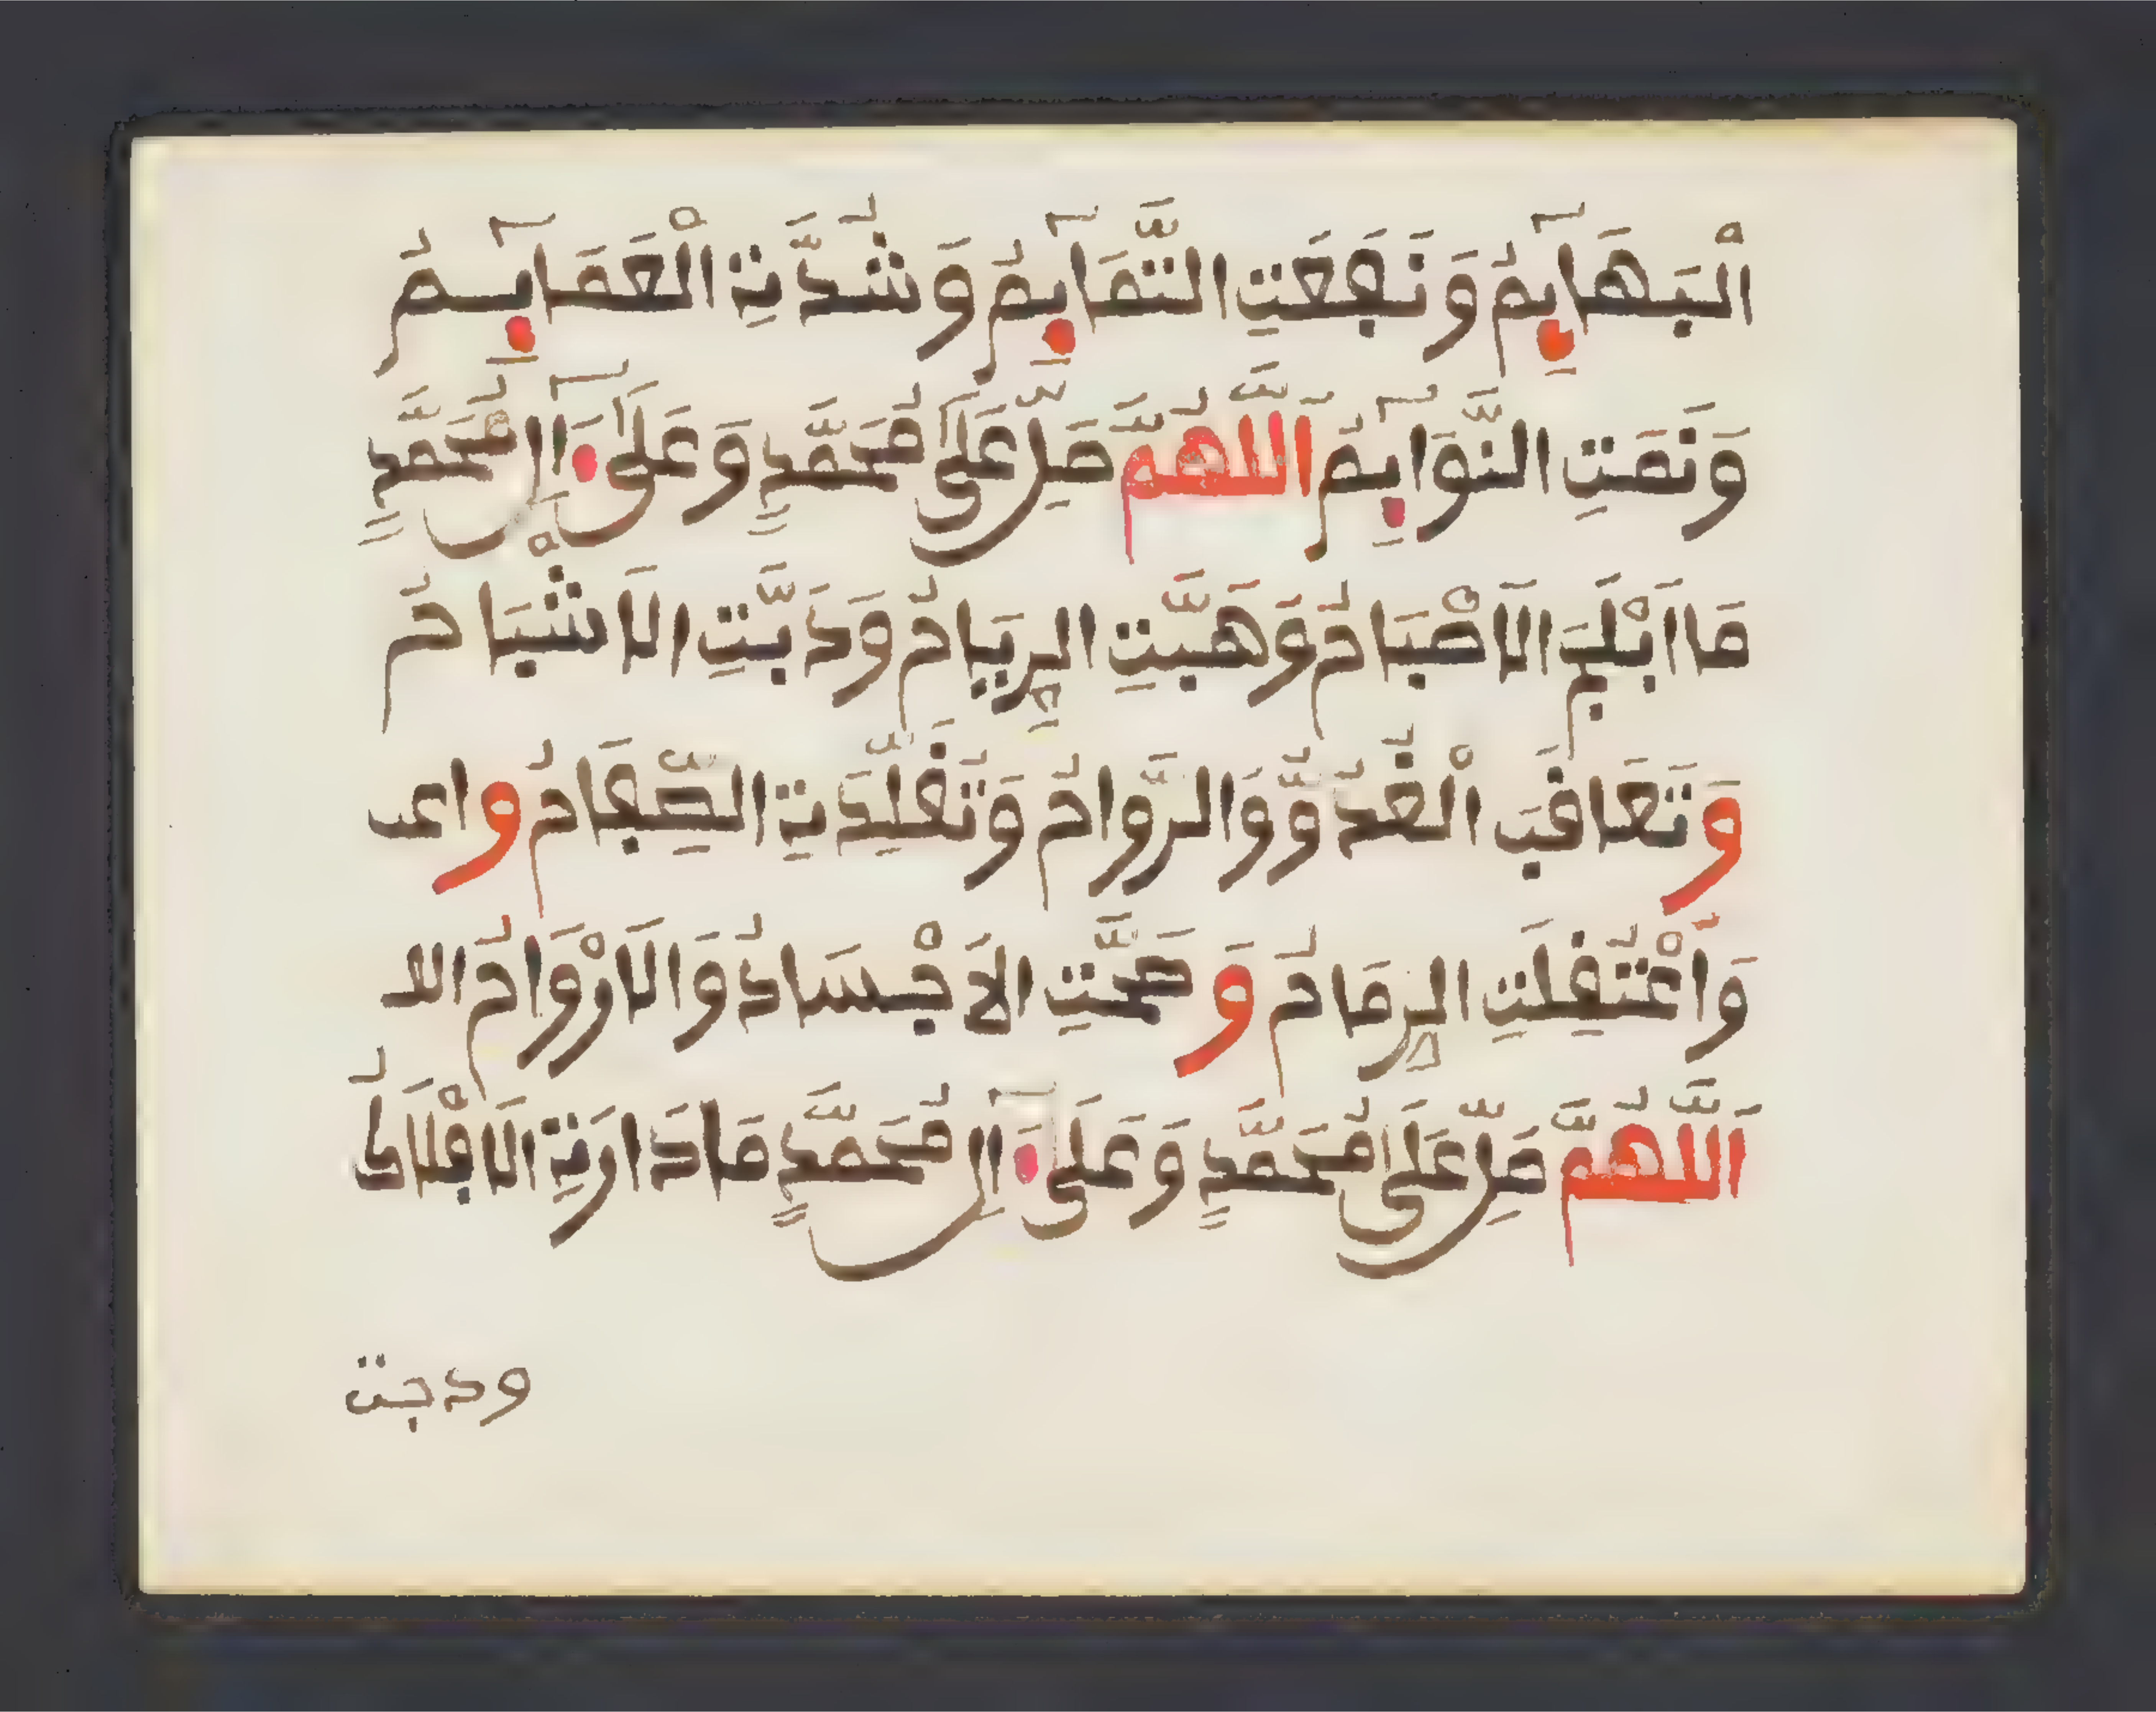 الْبَهَآئِمُ وَنَفَعَتِ التَّمَآئِمُ وَشُدَّتِ الْعَمَآئِمُ
وَنَمَتِ النَّوَآئِمُ اَللَّهُمَّ صَلِّ عَلَى مُحَمَّدٍ وَعَلَىٰ ءَالِ مُحَمَّدٍ
مَا اَبْلَجَ الاَصْبَاحُ وَهَبَّتِ الرِّيَاحُ وَدَبَّتِ الاَشْبَاحُ
وَتَعَاقَبَ الْغُدُوُّ وَالرَّوَاحُ وَتُقُلِّدَتِ الصِّفَاحُ واعـ
وَاُعْتُقِلَتِ الرِّمَاحُ وَصَحَّتِ الاَجْسَادُ وَالاَرْوَاحُ اللـ
اَللَّهُمَّ صَلِّ عَلَى مُحَمَّدٍ وَعَلَى ءَالِ مُحَمَّدٍ مَا دَارَتِ الاَفْلاَكُ
ودجت